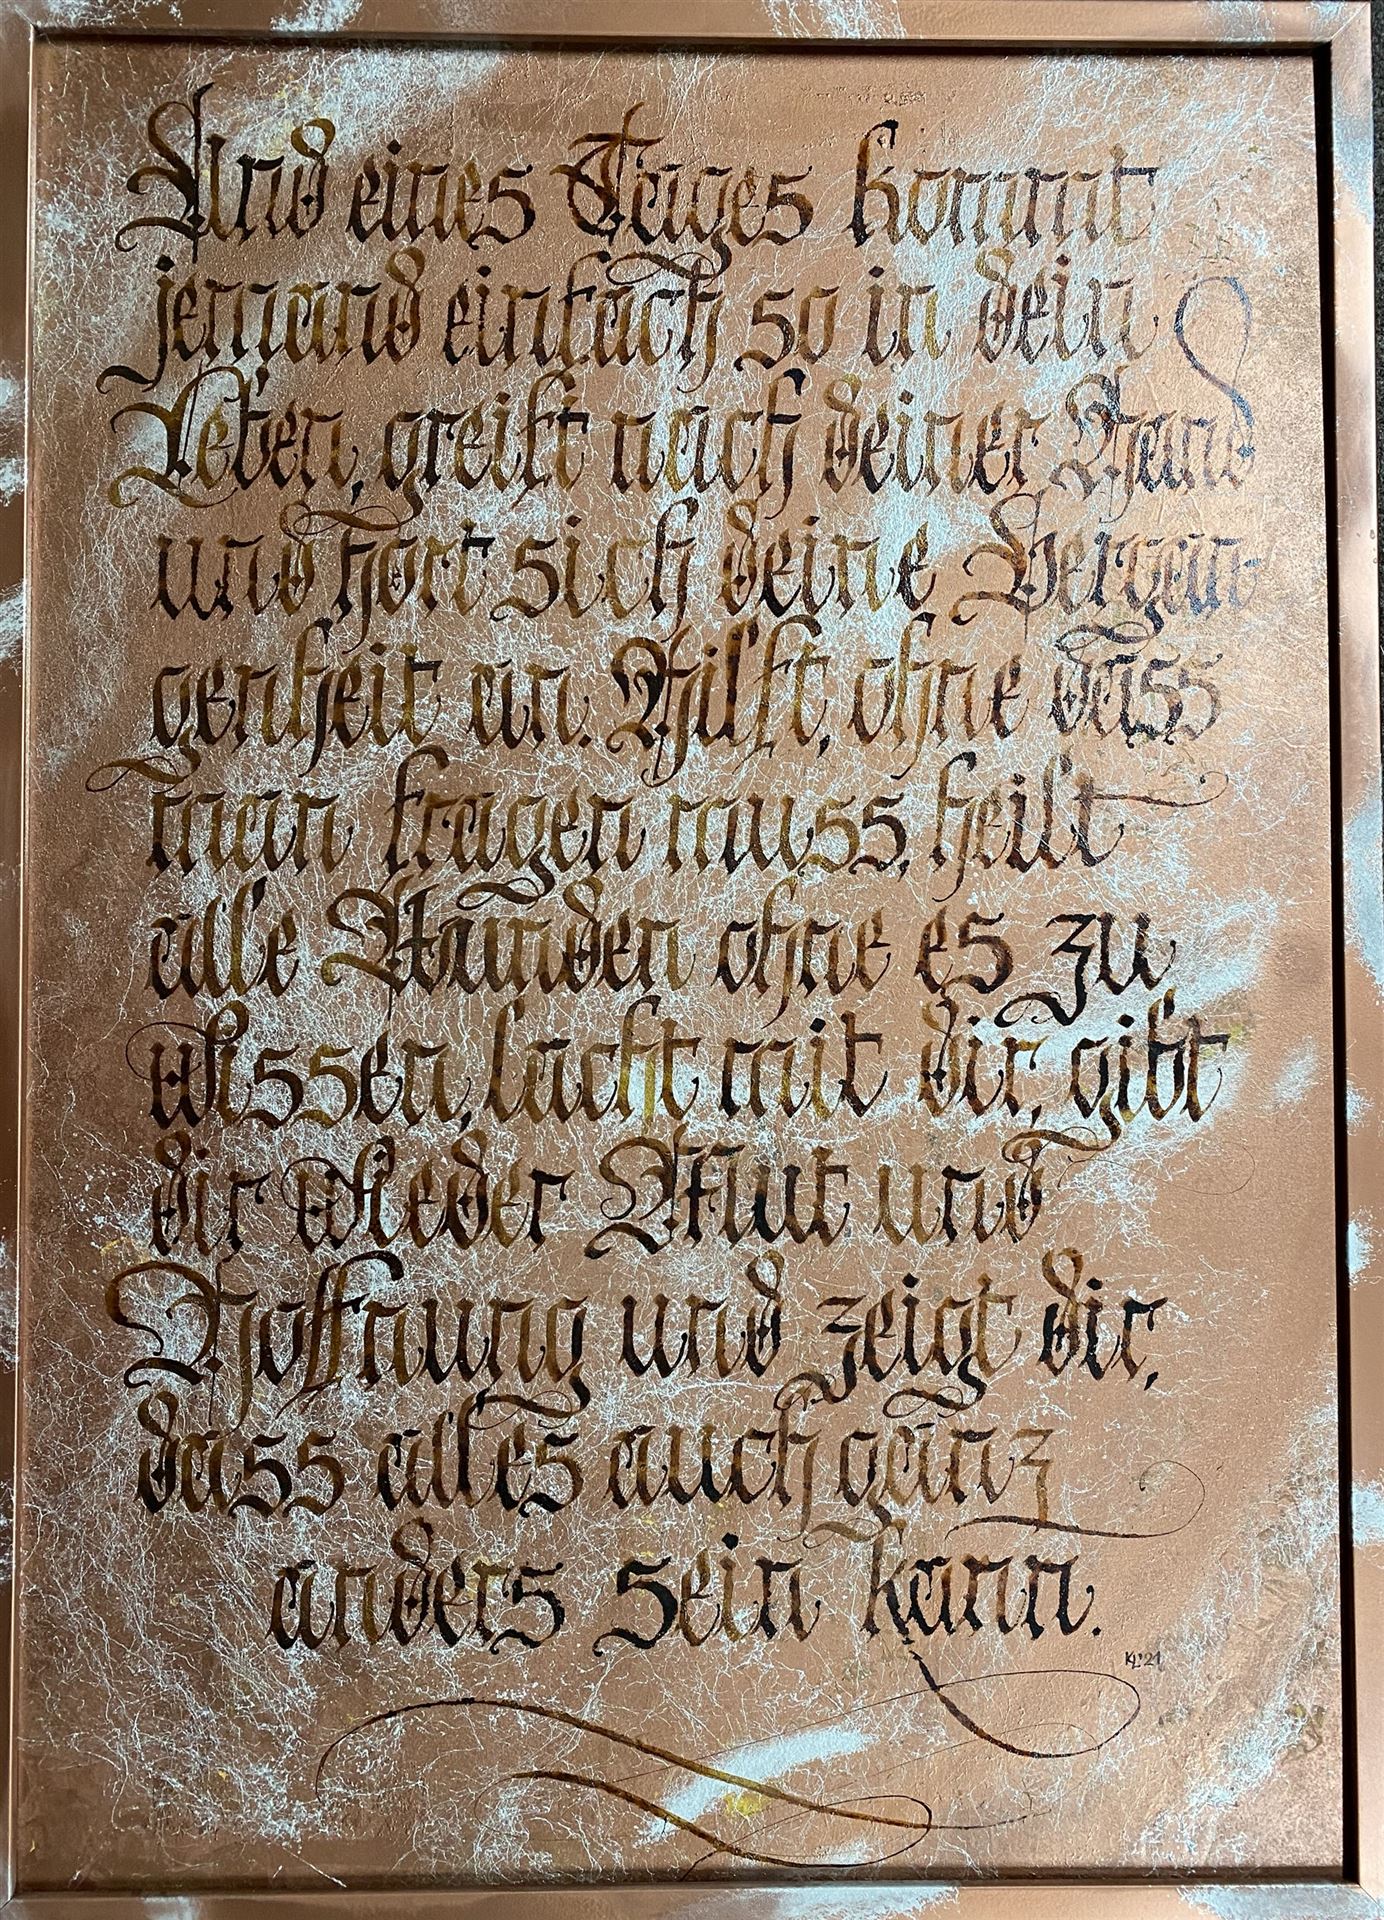 Und eines Tages kommt
jemand einfach so in dein
Leben, greift nach deiner Hand
und hört sich deine Vergan
genheit an. Hilft, ohne dass
man fragen muss, heilt
alle Wunden ohne es zu
wissen, lacht mit dir, gibt
dir wieder Mut und
Hoffnung und zeigt dir,
dass alles auch ganz
anders sein kann.
KL'21